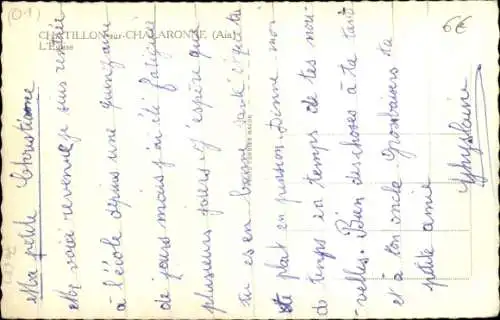 (01)
6€
CHATILLON-sur-CHALARONNE (Ain)
L'Eglise
Ma petite Christiane
Me voici revenue je suis rentrée
à l'école depuis une quinzaine
de jours mais j'ai été fatiguée
plusieurs jours et j'espère que
tu es en bonne santé
plait en pension. Donne moi
de temps en temps de tes nou-
velles. Bien des choses à ta tante
et à ton oncle Grosbaisers ta
petite amie
Ghyslaine